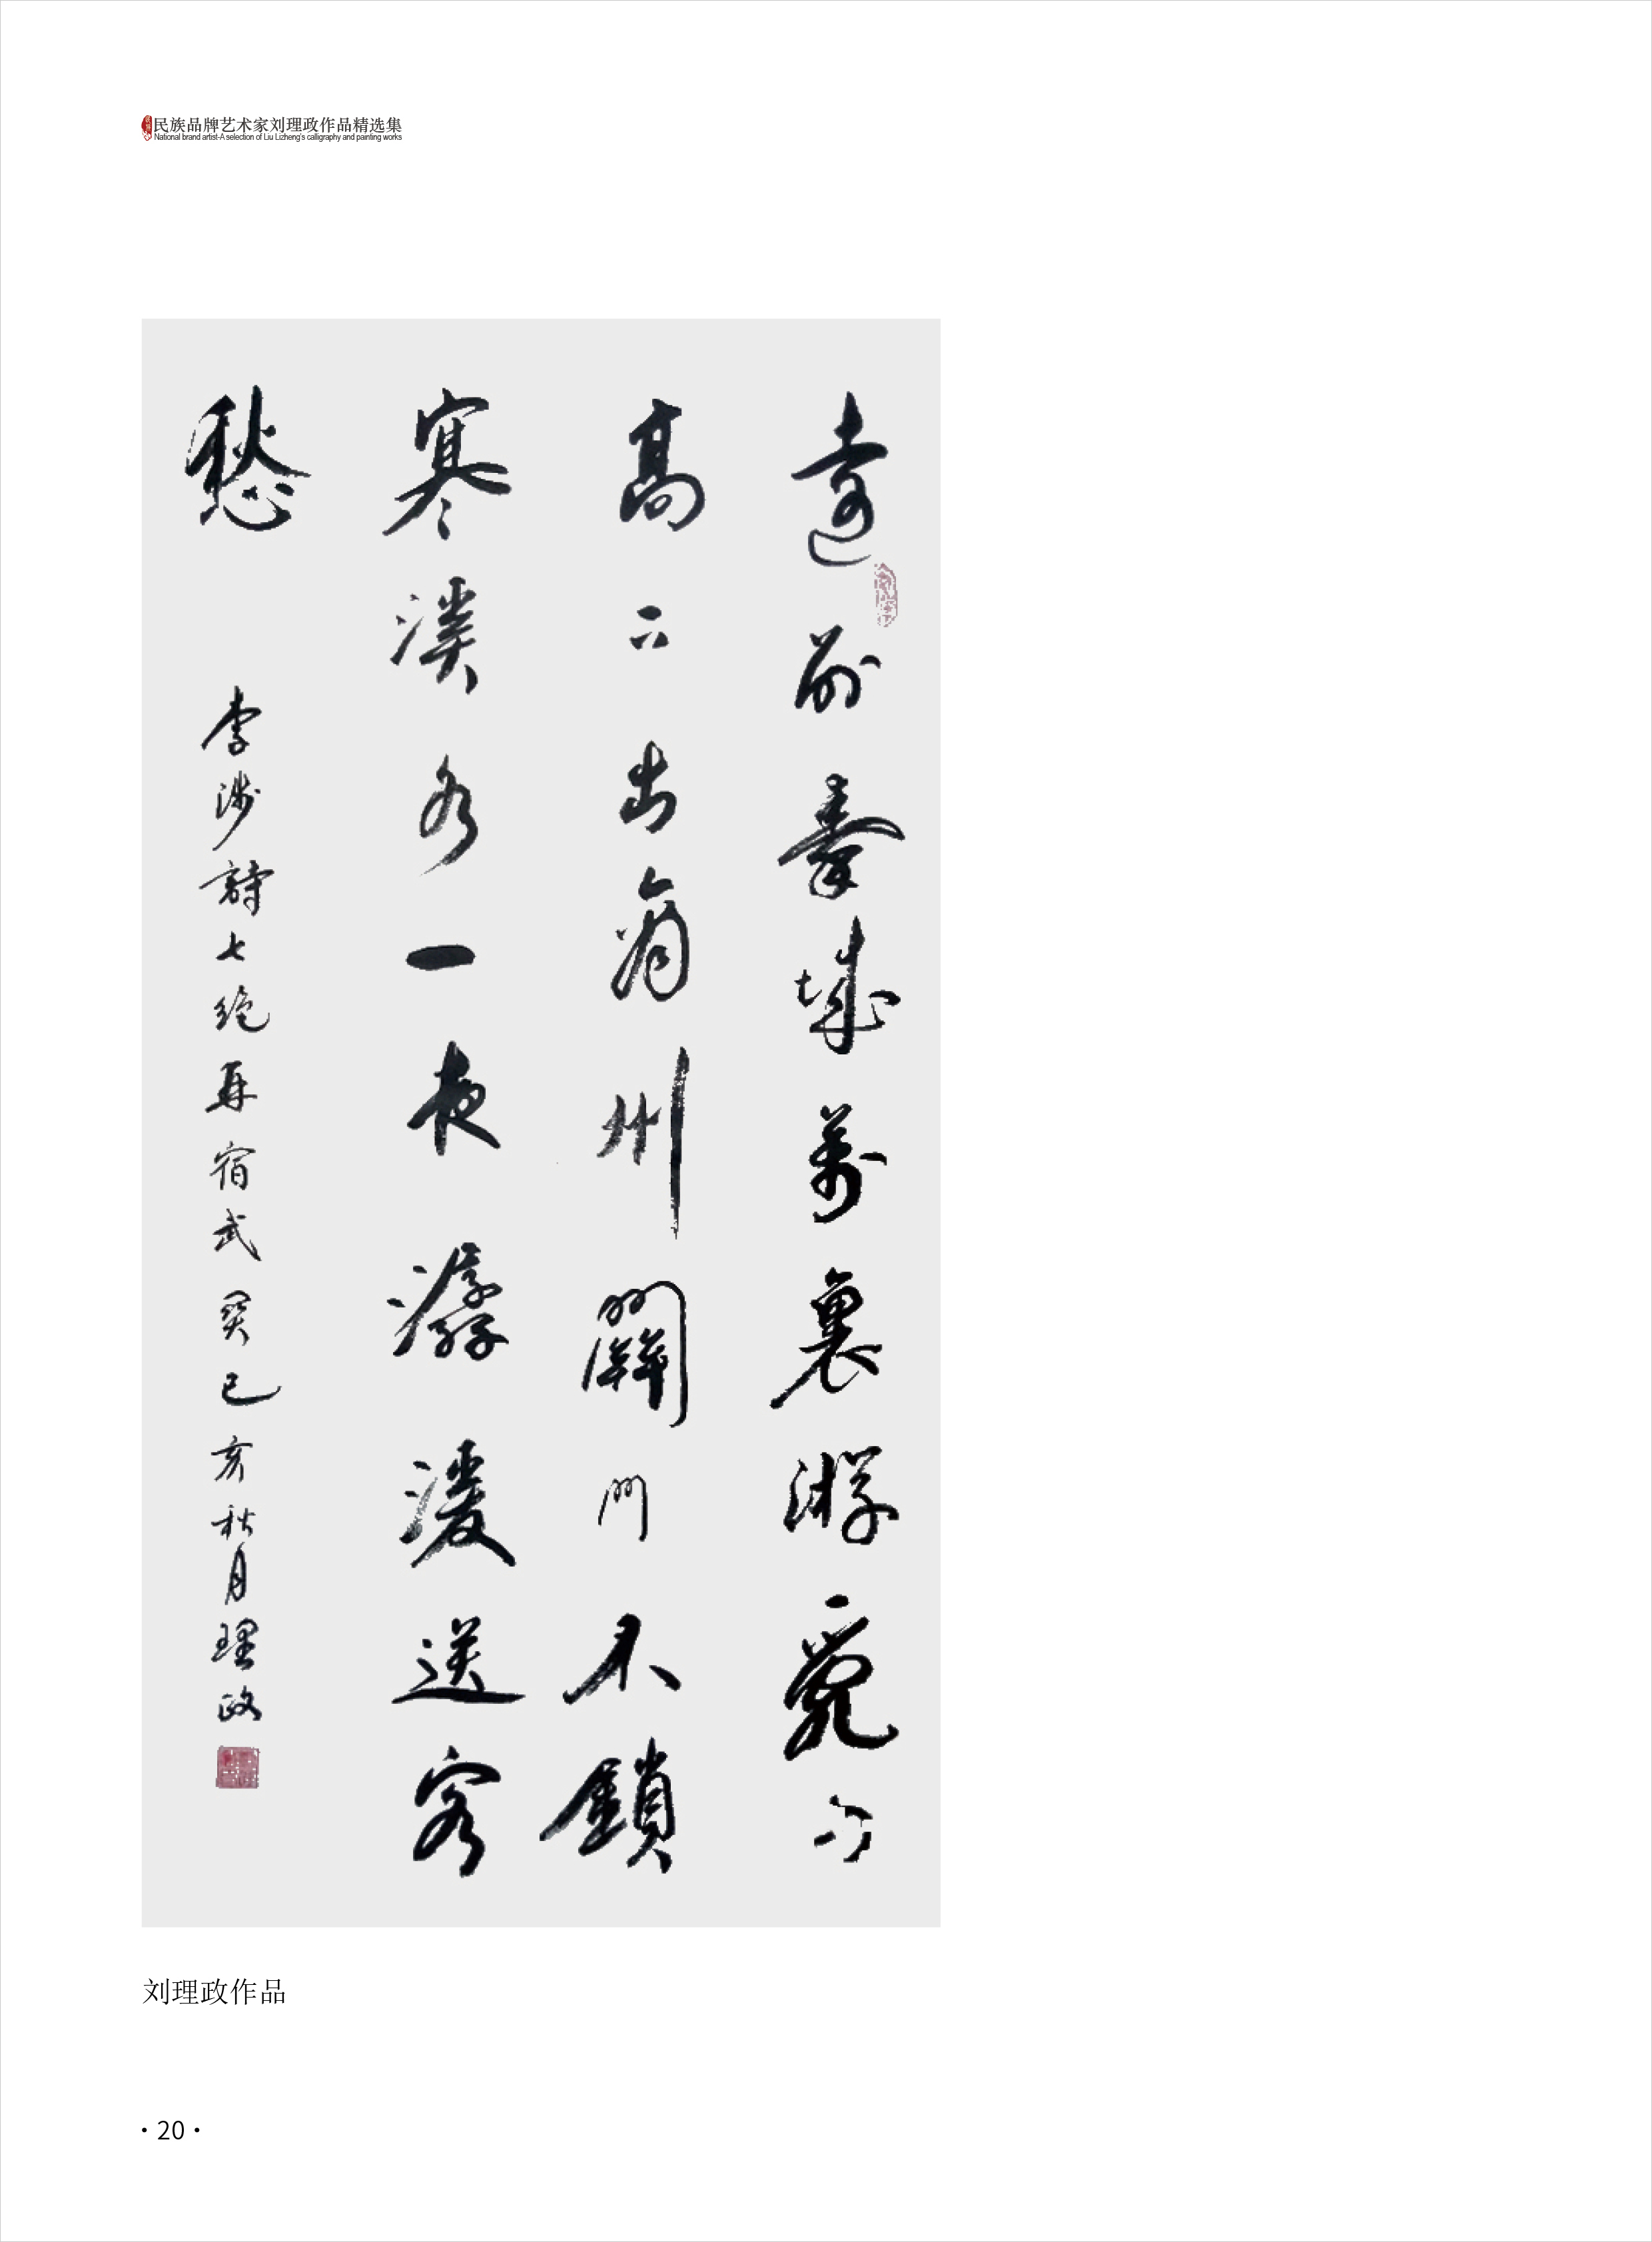 民族品牌艺术家刘理政作品精选集
National brand artist-A selection of Liu Lizheng's calligraphy and painting works
遠別秦城萬裏游亂山
高下出商州關門不鎖
寒溪水一夜潺湲送客
愁
李涉詩七絕再宿武關己亥秋月理政
刘理政作品
·20·